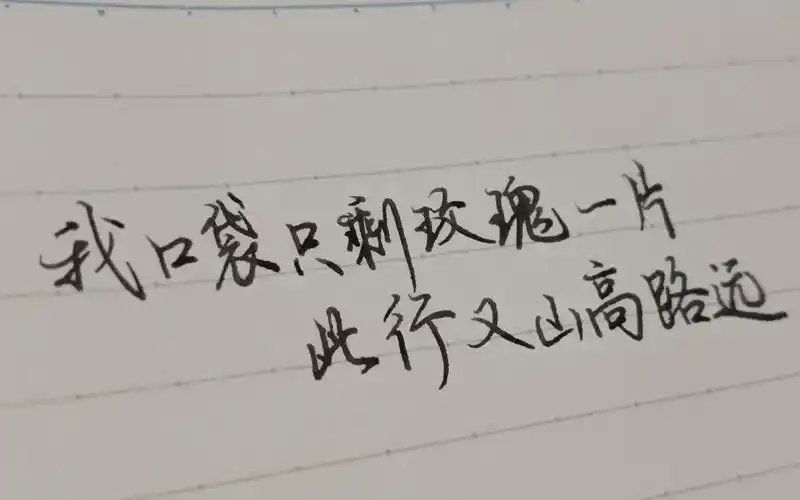 我口袋只剩玫瑰一片
此行又山高路远